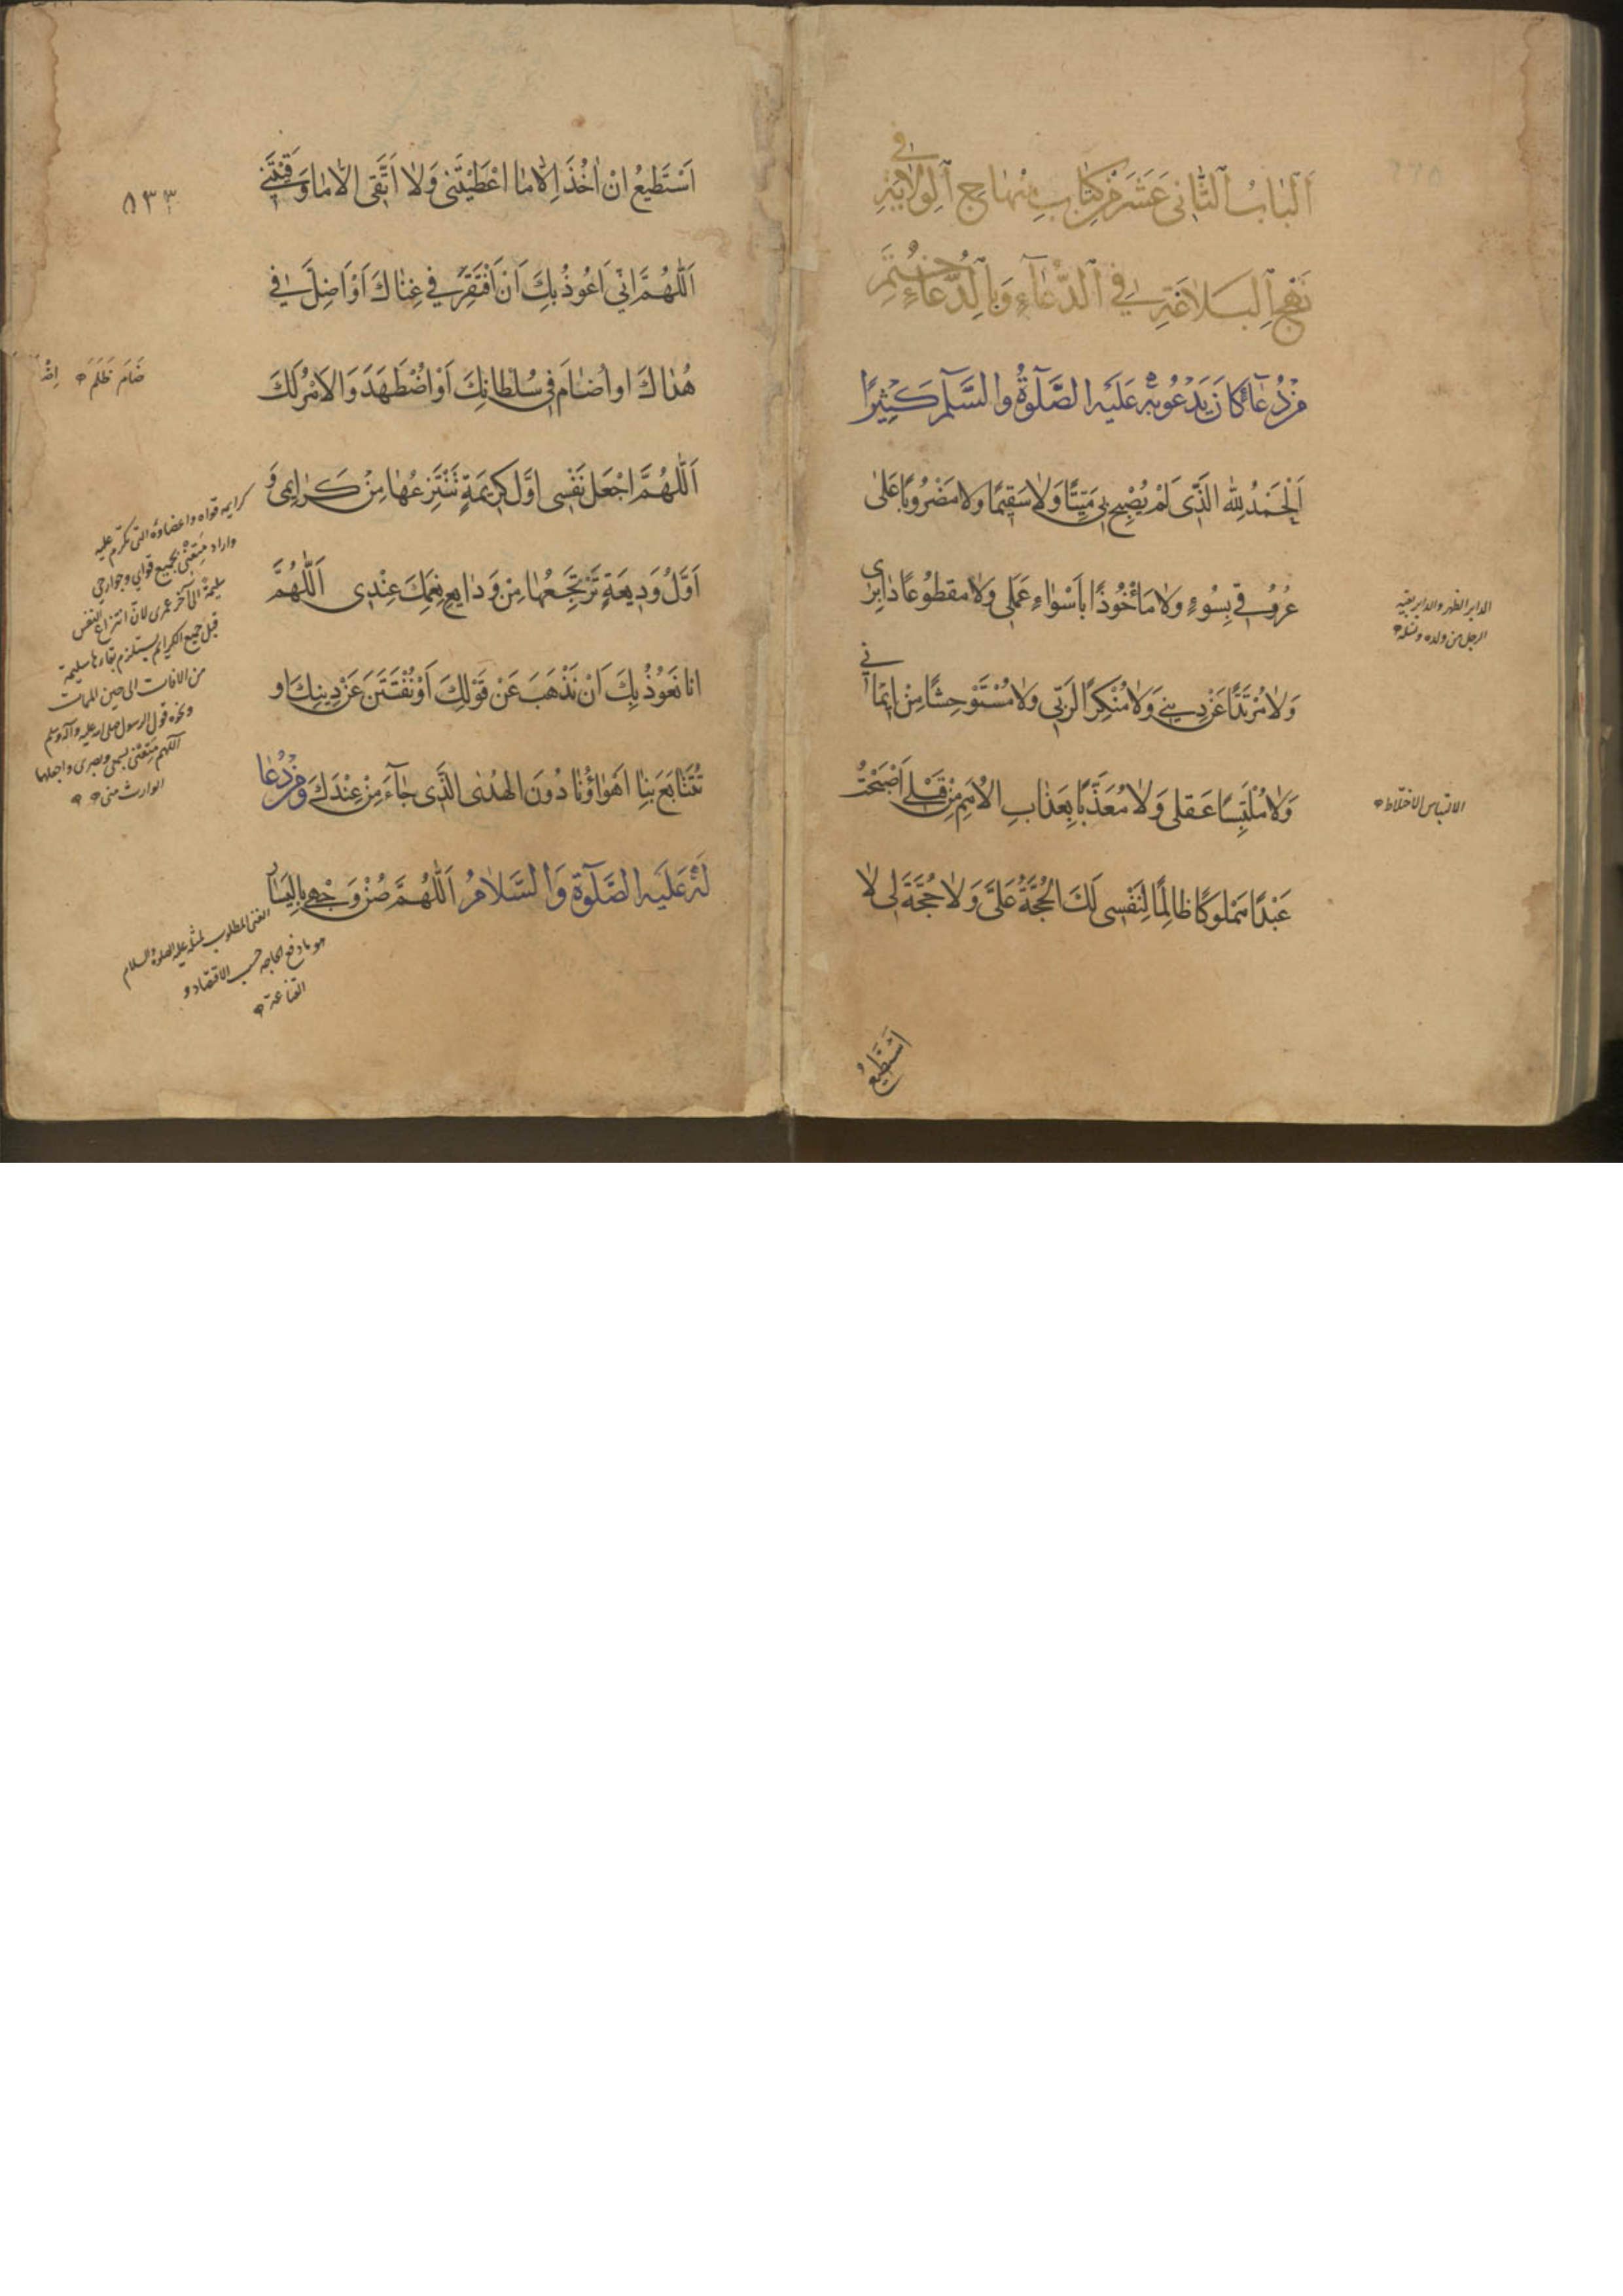 اَلْبَابُ الثَّانِی عَشَرَ مِنْ كِتَابِ مِنْهَاجِ الْوِلَايَةِ فِی
نَهْجِ الْبَلَاغَةِ فِی الدُّعَآءِ وَبِالدُّعَاءِ خُتِمَ
مِنْ دُعَآءٍ كَانَ يَدْعُو بِهِ عَلَيْهِ الصَّلٰوةُ وَالسَّلٰم كَثِيْرًا
اَلْحَمْدُ لِلّٰهِ الَّذِی لَمْ يُصْبِحْ بِی مَيِّتًا وَلَا سَقِيْمًا وَلَا مَضْرُوبًا عَلٰی
عُرُوقِی بِسُوْءٍ وَلَا مَأْخُوْذًا بِاَسْوَاءِ عَمَلِی وَلَا مَقْطُوعًا دَابِرِی
وَلَا مُرْتَدًّا عَنْ دِيْنِی وَلَا مُنْكِرًا لِرَبِّی وَلَا مُسْتَوْحِشًا مِنْ اِيْمَانِی
وَلَا مُلْتَبِسًا عَقْلِی وَلَا مُعَذَّبًا بِعَذَابِ الْاُمَمِ مِنْ قَبْلِی اَصْبَحْتُ
عَبْدًا مَمْلُوكًا ظَالِمًا لِنَفْسِی لَكَ الْحُجَّةُ عَلَیَّ وَلَا حُجَّةَ لِی لَا
اَسْتَطِيْعُ
الدابر الظهر والدابر بقية
الرجل من ولده ونسله
الالتباس الاختلاط
اَسْتَطِيْعُ اَنْ اٰخُذَ اِلَّا مَا اَعْطَيْتَنِی وَلَا اَتَّقِی اِلَّا مَا وَقَيْتَنِی
اَللّٰهُمَّ اِنِّی اَعُوْذُ بِكَ اَنْ اَفْتَقِرَ فِی غِنَاكَ اَوْ اَضِلَّ فِی
هُدَاكَ اَوْ اُضَامَ فِی سُلْطَانِكَ اَوْ اُضْطَهَدَ وَالْاَمْرُ لَكَ
اَللّٰهُمَّ اجْعَلْ نَفْسِی اَوَّلَ كَرِيْمَةٍ تَنْتَزِعُهَا مِنْ كَرَائِمِی وَ
اَوَّلَ وَدِيْعَةٍ تَرْتَجِعُهَا مِنْ وَدَايِعِ نِعَمِكَ عِنْدِی اَللّٰهُمَّ
اِنَّا نَعُوْذُ بِكَ اَنْ نَذْهَبَ عَنْ قَوْلِكَ اَوْ نُفْتَتَنَ عَنْ دِيْنِكَ اَو
تَتَتَابَعَ بِنَا اَهْوَاؤُنَا دُوْنَ الْهُدٰی الَّذِی جَآءَ مِنْ عِنْدِكَ وَمِنْ دُعَا
لَهُ عَلَيْهِ الصَّلٰوةُ وَالسَّلَامُ اَللّٰهُمَّ صُنْ وَجْهِی بِالْيَسَار
٨٣٣
ضَامَ ظَلَمَ
كرايمه قواه واعضاؤه التی تكرم عليه
واراد متعنی بجميع قوای وجوارحی
سليمة الی آخر عمری لان انتزاع النفس
قبل جميع الكرايم يستلزم بقاءها سليمة
من الافات الی حين الممات
ونحوه قول الرسول صلی الله عليه وآله وسلم
اللهم متعنی بسمعی وبصری واجعلها
الوارث منی
الغنی المطلوب لمثله عليه الصلوة والسلام
هو ما دفع الحاجة حسب الاقتصاد و
القناعة